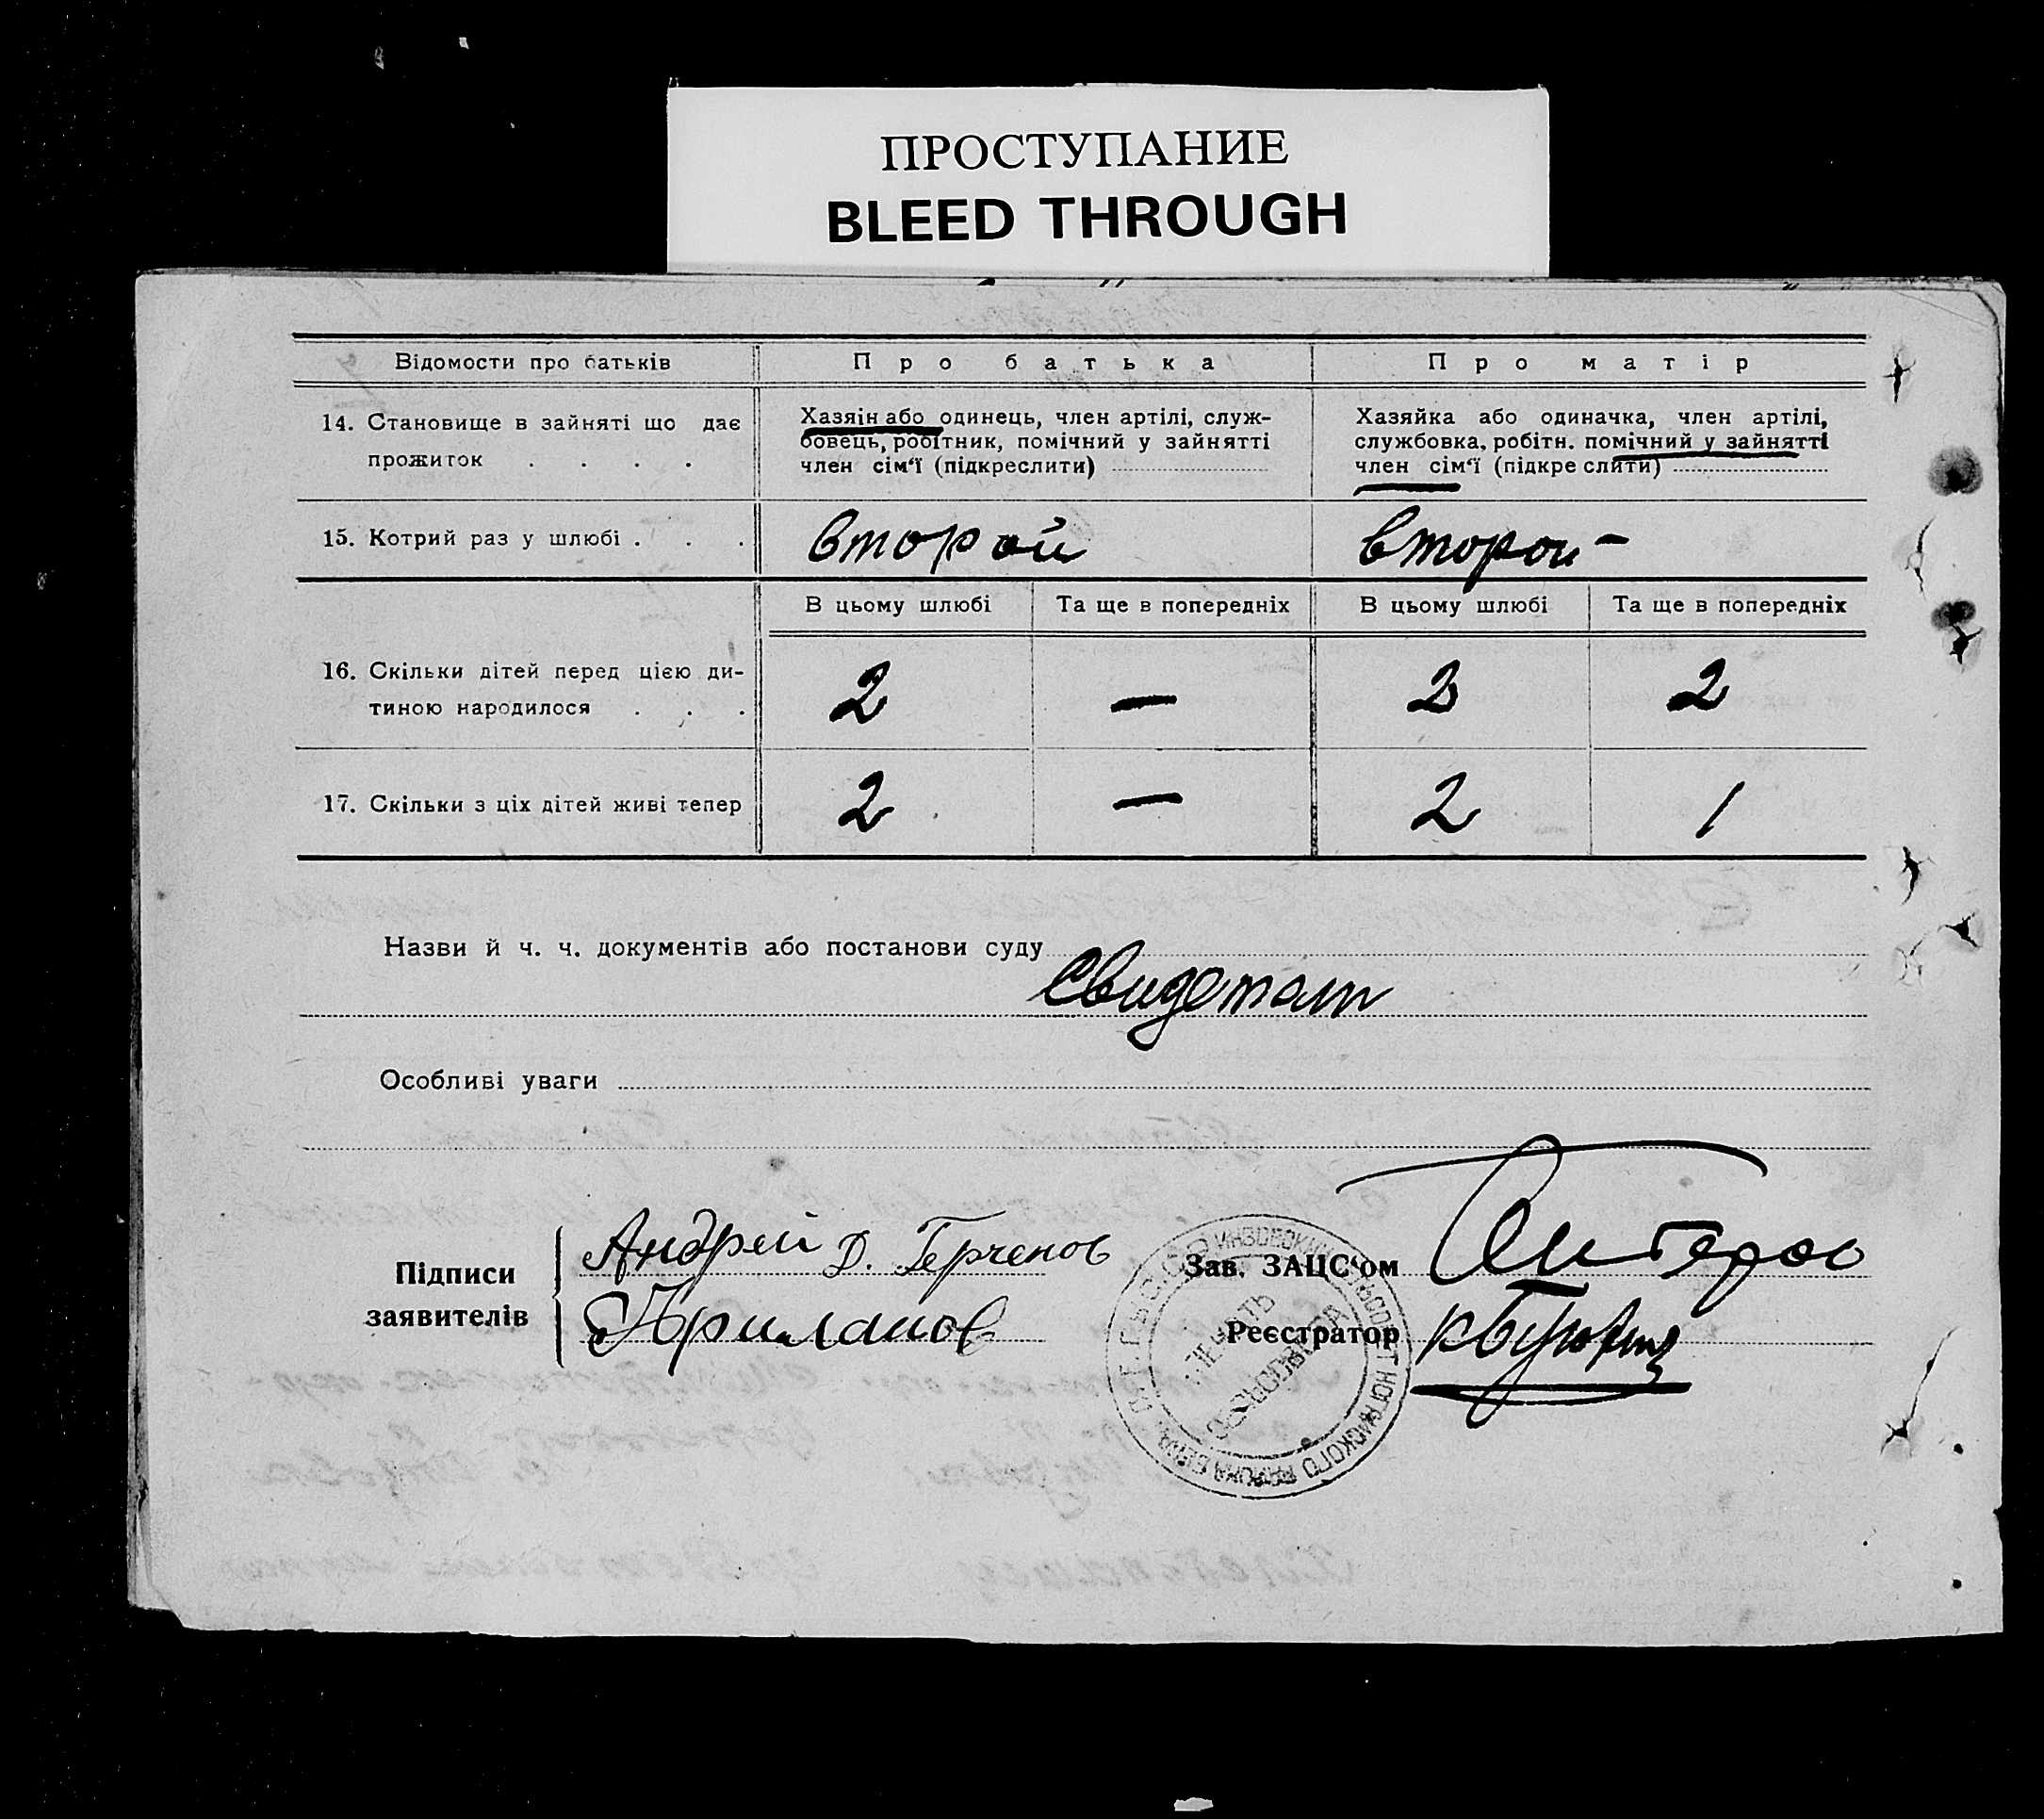 ПРОСТУПАНИЕ
BLEED THROUGH
Відомости про батьків
Про батька
Про матір
14. Становище в зайняті що дає
прожиток . . . .
Хазяін або одинець, член артілі, служ-
бовець, робітник, помічний у зайнятті
член сім‘ї (підкреслити)
Хазяйка або одиначка, член артілі,
службовка, робітн. помічний у зайнятті
член сім‘ї (підкреслити)
15. Котрий раз у шлюбі . . .
второй
второй
В цьому шлюбі
Та ще в попередніх
В цьому шлюбі
Та ще в попередніх
16. Скільки дітей перед цією ди-
тиною народилося . . .
2
—
2
2
17. Скільки з ціх дітей живі тепер
2
—
2
1
Назви й ч. ч. документів або постанови суду
Свидетели
Особливі уваги
Підписи
заявителів
Андрей Д. Герченов
Зав. ЗАЦС‘ом
Реєстратор
ПЕЧАТЬ